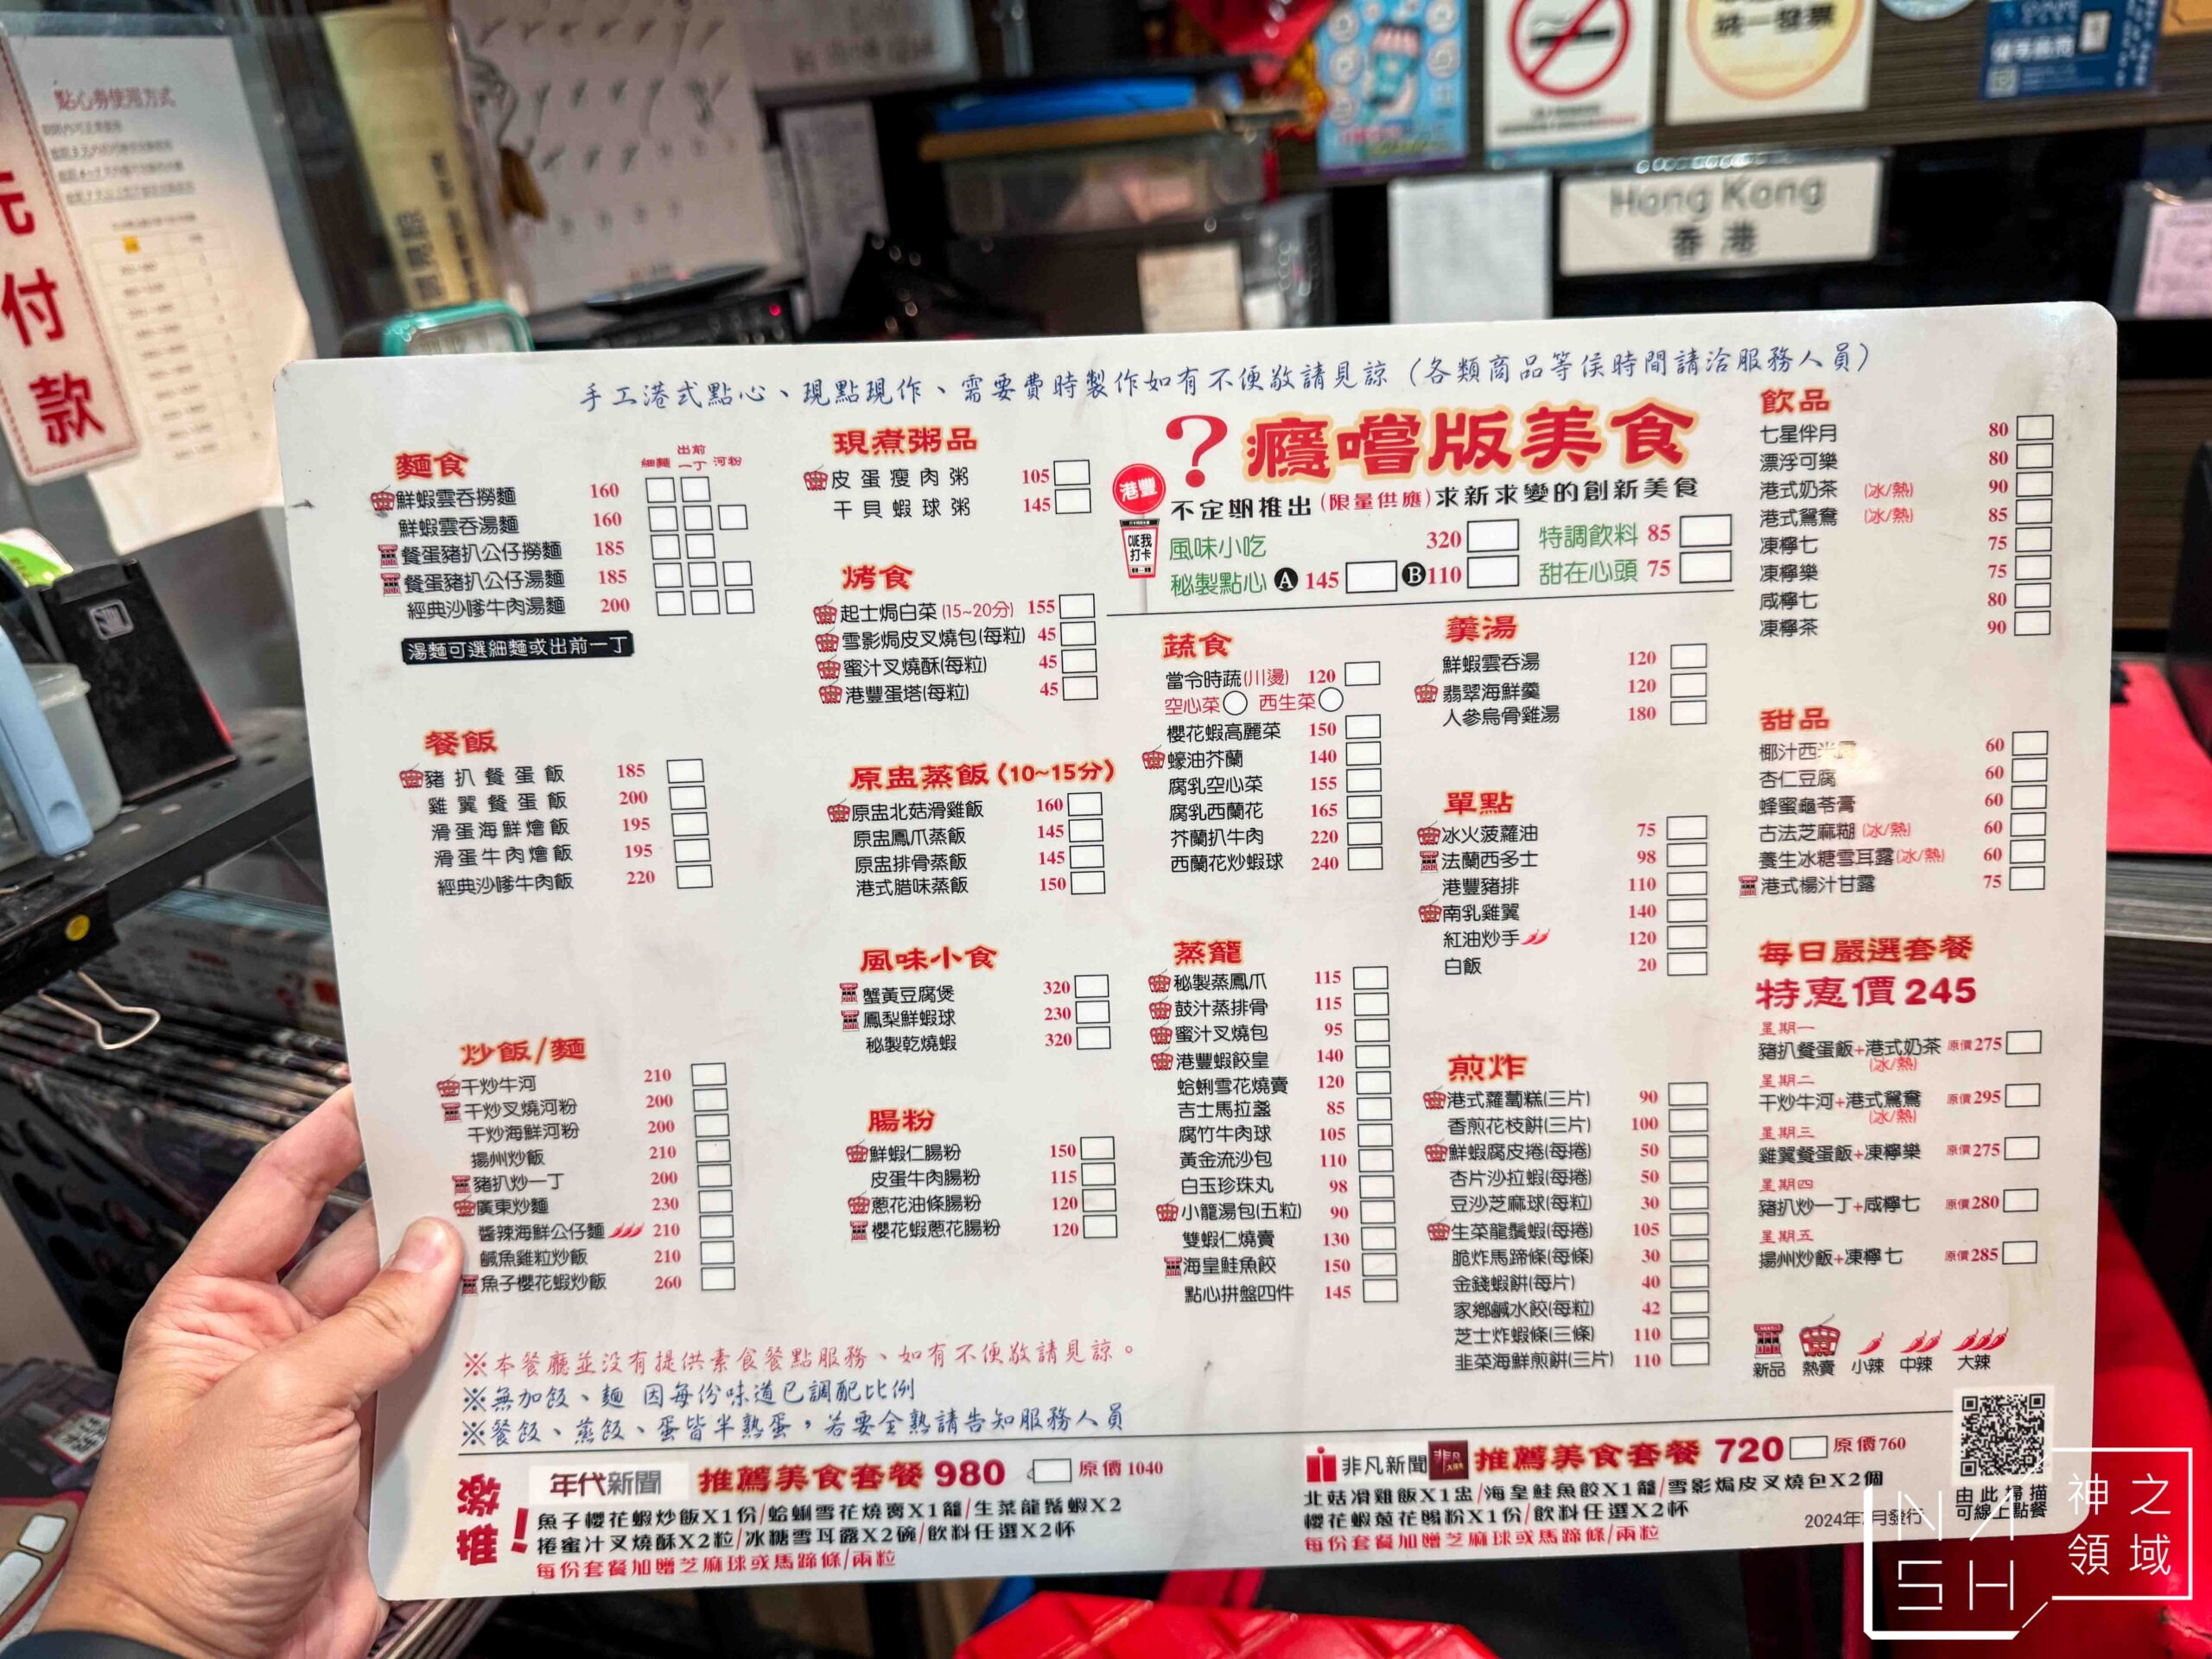 點心券使用方式
元付款
統一發票
Hong Kong
香港
手工港式點心、現點現作、需要費時製作如有不便敬請見諒（各類商品等侯時間請洽服務人員）
麵食
細麵 出前一丁 河粉
鮮蝦雲吞撈麵 160
鮮蝦雲吞湯麵 160
餐蛋豬扒公仔撈麵 185
餐蛋豬扒公仔湯麵 185
經典沙嗲牛肉湯麵 200
湯麵可選細麵或出前一丁
餐飯
豬扒餐蛋飯 185
雞翼餐蛋飯 200
滑蛋海鮮燴飯 195
滑蛋牛肉燴飯 195
經典沙嗲牛肉飯 220
炒飯/麵
干炒牛河 210
干炒叉燒河粉 200
干炒海鮮河粉 200
揚州炒飯 210
豬扒炒一丁 200
廣東炒麵 230
醬辣海鮮公仔麵 210
鹹魚雞粒炒飯 210
魚子櫻花蝦炒飯 260
現煮粥品
皮蛋瘦肉粥 105
干貝蝦球粥 145
烤食
起士焗白菜(15~20分) 155
雪影焗皮叉燒包(每粒) 45
蜜汁叉燒酥(每粒) 45
港豐蛋塔(每粒) 45
原盅蒸飯（10~15分）
原盅北菇滑雞飯 160
原盅鳳爪蒸飯 145
原盅排骨蒸飯 145
港式腊味蒸飯 150
風味小食
蟹黃豆腐煲 320
鳳梨鮮蝦球 230
秘製乾燒蝦 320
腸粉
鮮蝦仁腸粉 150
皮蛋牛肉腸粉 115
蔥花油條腸粉 120
櫻花蝦蔥花腸粉 120
?癮嚐版美食
港豐
不定期推出(限量供應)求新求變的創新美食
打卡
風味小吃 320 特調飲料 85
秘製點心 A 145 B 110 甜在心頭 75
蔬食
當令時蔬(川燙) 120
空心菜 西生菜
櫻花蝦高麗菜 150
蠔油芥蘭 140
腐乳空心菜 155
腐乳西蘭花 165
芥蘭扒牛肉 220
西蘭花炒蝦球 240
蒸籠
秘製蒸鳳爪 115
鼓汁蒸排骨 115
蜜汁叉燒包 95
港豐蝦餃皇 140
蛤蜊雪花燒賣 120
吉士馬拉盞 85
腐竹牛肉球 105
黃金流沙包 110
白玉珍珠丸 98
小籠湯包(五粒) 90
雙蝦仁燒賣 130
海皇鮭魚餃 150
點心拼盤四件 145
羹湯
鮮蝦雲吞湯 120
翡翠海鮮羹 120
人參烏骨雞湯 180
單點
冰火菠蘿油 75
法蘭西多士 98
港豐豬排 110
南乳雞翼 140
紅油炒手 120
白飯 20
煎炸
港式蘿蔔糕(三片) 90
香煎花枝餅(三片) 100
鮮蝦腐皮捲(每捲) 50
杏片沙拉蝦(每捲) 50
豆沙芝麻球(每粒) 30
生菜龍鬚蝦(每捲) 105
脆炸馬蹄條(每條) 30
金錢蝦餅(每片) 40
家鄉鹹水餃(每粒) 42
芝士炸蝦條(三條) 110
韭菜海鮮煎餅(三片) 110
飲品
七星伴月 80
漂浮可樂 80
港式奶茶 (冰/熱) 90
港式鴛鴦 (冰/熱) 85
凍檸七 75
凍檸樂 75
咸檸七 80
凍檸茶 90
甜品
椰汁西米 60
杏仁豆腐 60
蜂蜜龜苓膏 60
古法芝麻糊 (冰/熱) 60
養生冰糖雪耳露(冰/熱) 60
港式楊汁甘露 75
每日嚴選套餐
特惠價245
星期一
豬扒餐蛋飯+港式奶茶 原價275
(冰/熱)
星期二
干炒牛河+港式鴛鴦 原價295
(冰/熱)
星期三
雞翼餐蛋飯+凍檸樂 原價275
星期四
豬扒炒一丁+咸檸七 原價280
星期五
揚州炒飯+凍檸七 原價285
新品 熱賣 小辣 中辣 大辣
※本餐廳並沒有提供素食餐點服務、如有不便敬請見諒。
※無加飯、麵 因每份味道已調配比例
※餐飯、蒸飯、蛋皆半熟蛋，若要全熟請告知服務人員
激推！
年代新聞 推薦美食套餐 980 原價1040
魚子櫻花蝦炒飯X1份/蛤蜊雪花燒賣X1籠/生菜龍鬚蝦X2
捲蜜汁叉燒酥X2粒/冰糖雪耳露X2碗/飲料任選X2杯
每份套餐加贈芝麻球或馬蹄條/兩粒
非凡新聞 推薦美食套餐 720 原價760
北菇滑雞飯X1盅/海皇鮭魚餃X1籠/雪影焗皮叉燒包X2個
櫻花蝦蔥花腸粉X1份/飲料任選X2杯
每份套餐加贈芝麻球或馬蹄條/兩粒
由此掃描
可線上點餐
2024年 月發行
NASH
神之領域